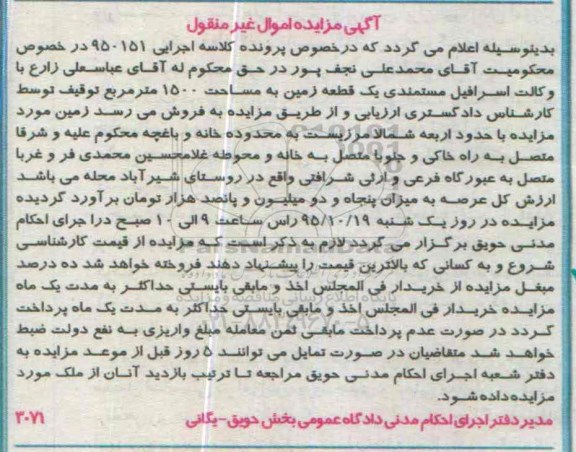 آگهی مزایده اموال غیر منقول
بدینوسیله اعلام می گردد که درخصوص پرونده کلاسه اجرایی ۹۵۰۱۵۱ در خصوص
محکومیت آقای محمدعلی نجف پور در حق محکوم له آقای عباسعلی زارع با
وکالت اسرافیل مستمندی یک قطعه زمین به مساحت ۱۵۰۰ مترمربع توقیف توسط
کارشناس دادگستری ارزیابی و از طریق مزایده به فروش می رسد زمین مورد
مزایده با حدود اربعه شمالا درست به محدوده خانه و باغچه محکوم علیه و شرقا
متصل به راه خاکی و جنوبا متصل به خانه و محوطه غلامحسین محمدی فر و غربا
متصل به عبورگاه فرعی و ارثی شرافتی واقع در روستای شیرآباد محله می باشد
ارزش کل عرصه به میزان پنجاه و دو میلیون و پانصد هزار تومان برآورد گردیده
مزایده در روز یک شنبه ۹۵/۱۰/۱۹ راس ساعت ۹ الی ۱۰ صبح درا جرای احکام
مدنی حویق برگزار می گردد لازم به ذکر است که مزایده از قیمت کارشناسی
شروع و به کسانی که بالاترین قیمت را پیشنهاد دهند فروخته خواهد شد ده درصد
مبلغ مزایده از خریدار فی المجلس اخذ و مابقی بایستی حداکثر به مدت یک ماه
مزایده خریدار فی المجلس اخذ و مابقی بایستی حداکثر به مدت یک ماه پرداخت
گردد در صورت عدم پرداخت مابقی ثمن معامله مبلغ واریزی به نفع دولت ضبط
خواهد شد متقاضیان در صورت تمایل می توانند ۵ روز قبل از موعد مزایده به
دفتر شعبه اجرای احکام مدنی حویق مراجعه تا ترتیب بازدید آنان از ملک مورد
مزایده داده شود.
مدیر دفتر اجرای احکام مدنی دادگاه عمومی بخش حویق-یگانی ۳۰۷۱